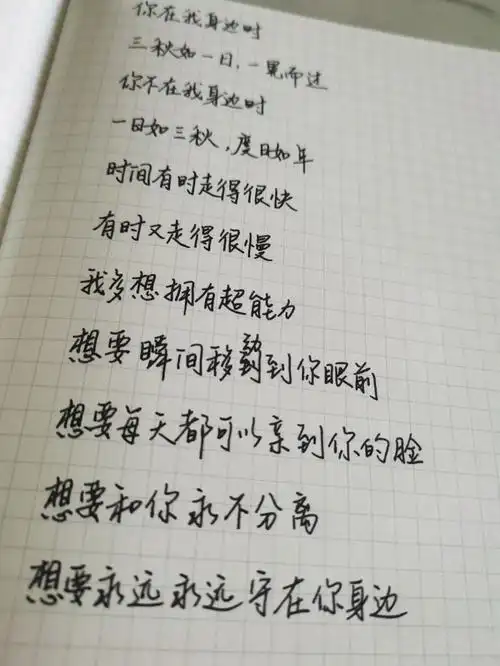 你在我身边时
三秋如一日，一晃而过
你不在我身边时
一日如三秋，度日如年
时间有时走得很快
有时又走得很慢
我多想拥有超能力
想要瞬间移动到你眼前
想要每天都可以亲到你的脸
想要和你永不分离
想要永远永远守在你身边